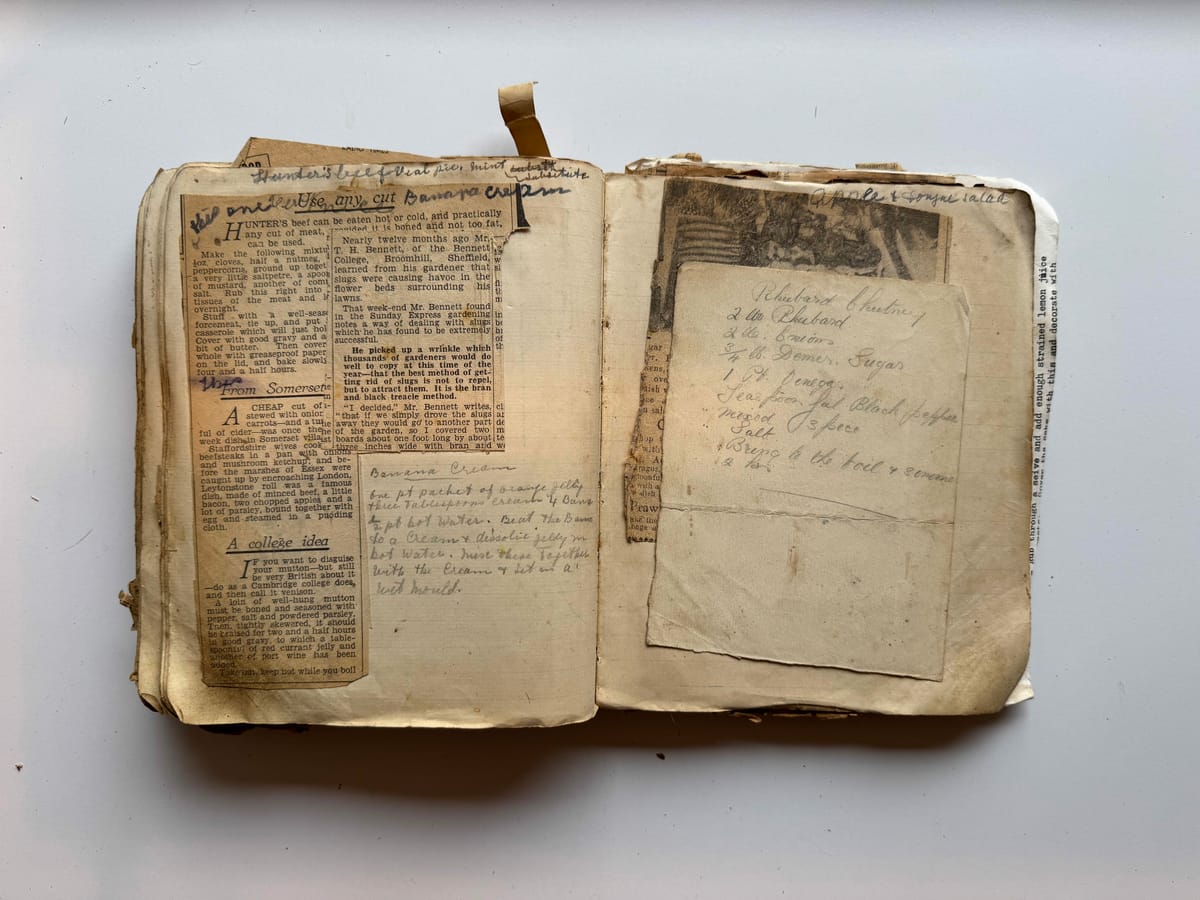 Hunter's beef & Veal pie. mint
substitute
Banana Cream
Use any cut
HUNTER'S beef can be eaten hot or cold, and practically
any cut of meat, provided it is boned and not too fat,
can be used.
Make the following mixtu
4oz. cloves, half a nutmeg,
peppercorns, ground up toget
a very little saltpetre, a spoon
of mustard, another of com
salt. Rub this right into
tissues of the meat and l
overnight.
Stuff with a well-seas
forcemeat, tie up, and put
casserole which will just hol
Cover with good gravy and a
bit of butter. Then cover
whole with greaseproof paper
on the lid, and bake slowly
four and a half hours.
From Somerset
A CHEAP cut of
stewed with onion
carrots—and a
ful of cider—was once the
week dish in Somerset villa
Staffordshire wives cook
beefsteaks in a pan with onions
and mushroom ketchup, and be-
fore the marshes of Essex were
caught up by encroaching London,
Leytonstone roll was a famous
dish, made of minced beef, a little
bacon, two chopped apples and a
lot of parsley, bound together with
egg and steamed in a pudding
cloth.
A college idea
IF you want to disguise
your mutton—but still
be very British about it
—do as a Cambridge college does,
and then call it venison.
A join of well-hung mutton
must be boned and seasoned with
pepper, salt and powdered parsley.
Then, tightly skewered, it should
be braised for two and a half hours
in good gravy, to which a table-
spoonful of red currant jelly and
another of port wine has been
added.
Take out, keep hot while you boil
Nearly twelve months ago Mr.
T. H. Bennett, of the Bennett
College, Broomhill, Sheffield,
learned from his gardener that
slugs were causing havoc in the
flower beds surrounding his
lawns.
That week-end Mr. Bennett found
in the Sunday Express gardening
notes a way of dealing with slugs
which he has found to be extremely
successful.
He picked up a wrinkle which
thousands of gardeners would do
well to copy at this time of the
year—that the best method of get-
ting rid of slugs is not to repel,
but to attract them. It is the bran
and black treacle method.
"I decided," Mr. Bennett writes,
"that if we simply drove the slugs
away they would go to another part
of the garden, so I covered two
boards about one foot long by about
three inches wide with bran and
Banana Cream
One pt packet of orange jelly
three tablespoons cream 4 Bana
½ pt hot water. Beat the Bana
to a Cream & dissolve jelly in
hot water. Mix these together
with the Cream & set in a
wet mould.
Apple & tongue salad
Rhubard Chutney
2 lbs Rhubard
2 lbs. Onions
3/4 lb. Demer. Sugar
1 Pt. Venegar
Teaspoon ful Black pepper
mixed Spice
Salt
Bring to the boil & simmer
2 hrs
rub through a seive and add enough strained lemon juice
with this and decorate with